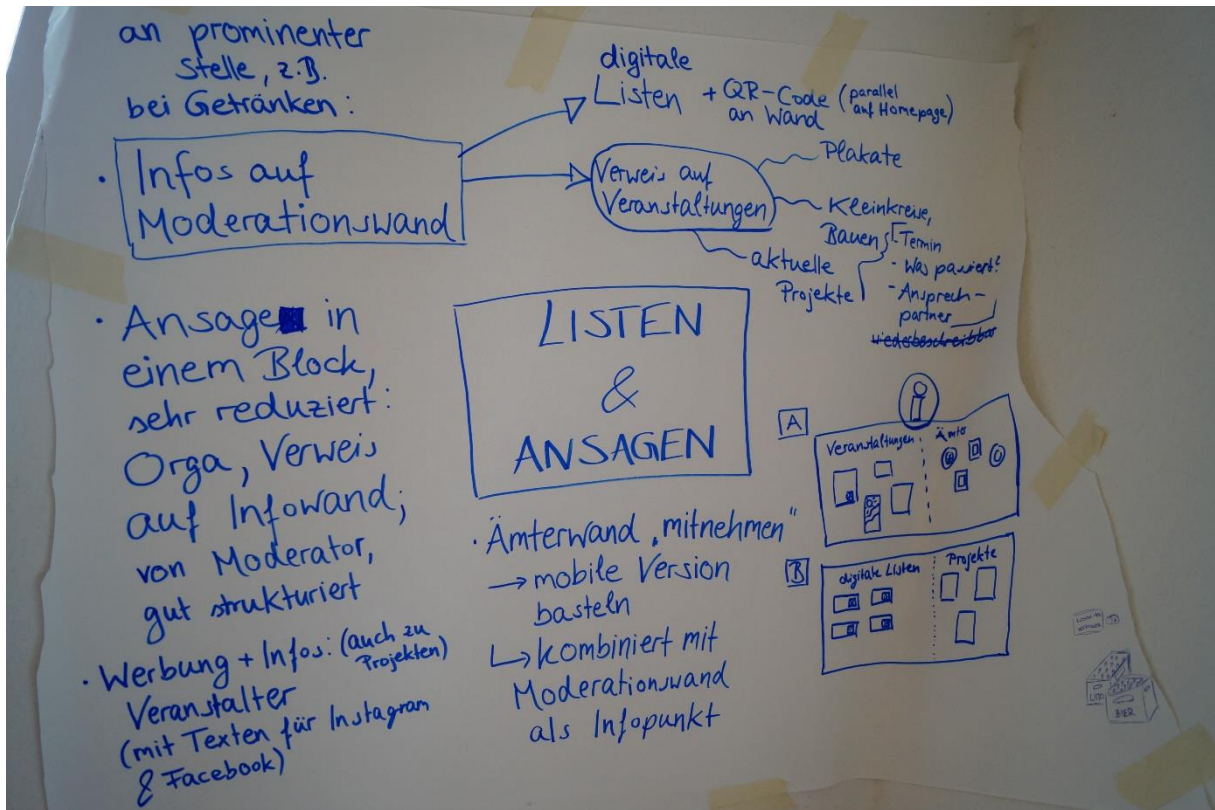 an prominenter
Stelle, z.B.
bei Getränken:
· Infos auf
Moderationswand
digitale
Listen + QR-Code (parallel
an Wand auf Homepage)
Verweis auf
Veranstaltungen
Plakate
Kleinkreise,
Bauen
- Termin
- Was passiert?
- Ansprech-
partner
wiederbeschreibbar
aktuelle
Projekte
LISTEN
&
ANSAGEN
· Ansage in
einem Block,
sehr reduziert:
Orga, Verweis
auf Infowand;
von Moderator,
gut strukturiert
· Werbung + Infos: (auch zu
Projekten)
Veranstalter
(mit Texten für Instagram
& Facebook)
· Ämterwand „mitnehmen"
→ mobile Version
basteln
↳ kombiniert mit
Moderationswand
als Infopunkt
i
A
Veranstaltungen
Ämter
B
digitale Listen
Projekte
BIER